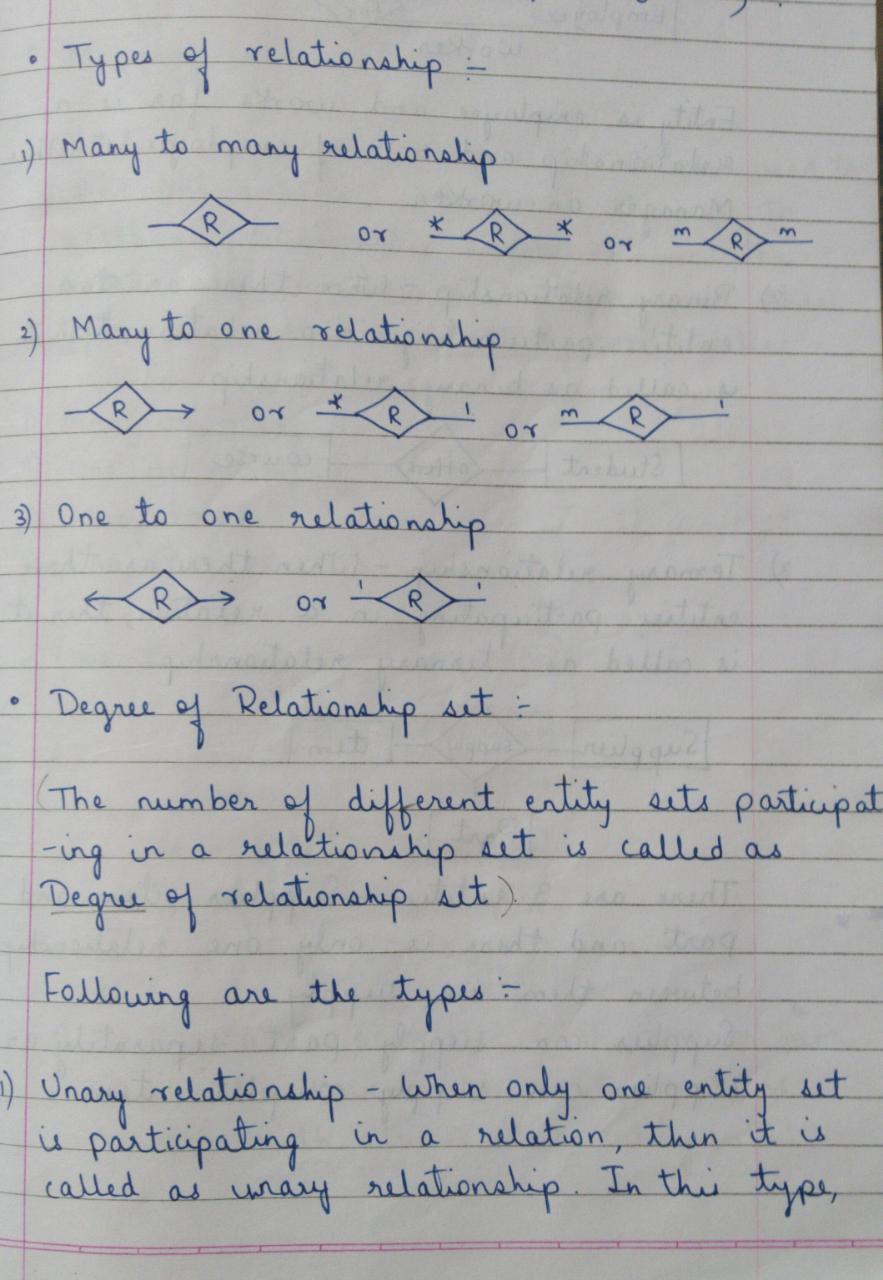 • Types of relationship :-
1) Many to many relationship
R or * R * or m R m
2) Many to one relationship
R or * R 1 or m R 1
3) One to one relationship
R or 1 R 1
• Degree of Relationship set :-
(The number of different entity sets participat
-ing in a relationship set is called as
Degree of relationship set).
Following are the types :-
1) Unary relationship - When only one entity set
is participating in a relation, then it is
called as unary relationship. In this type,